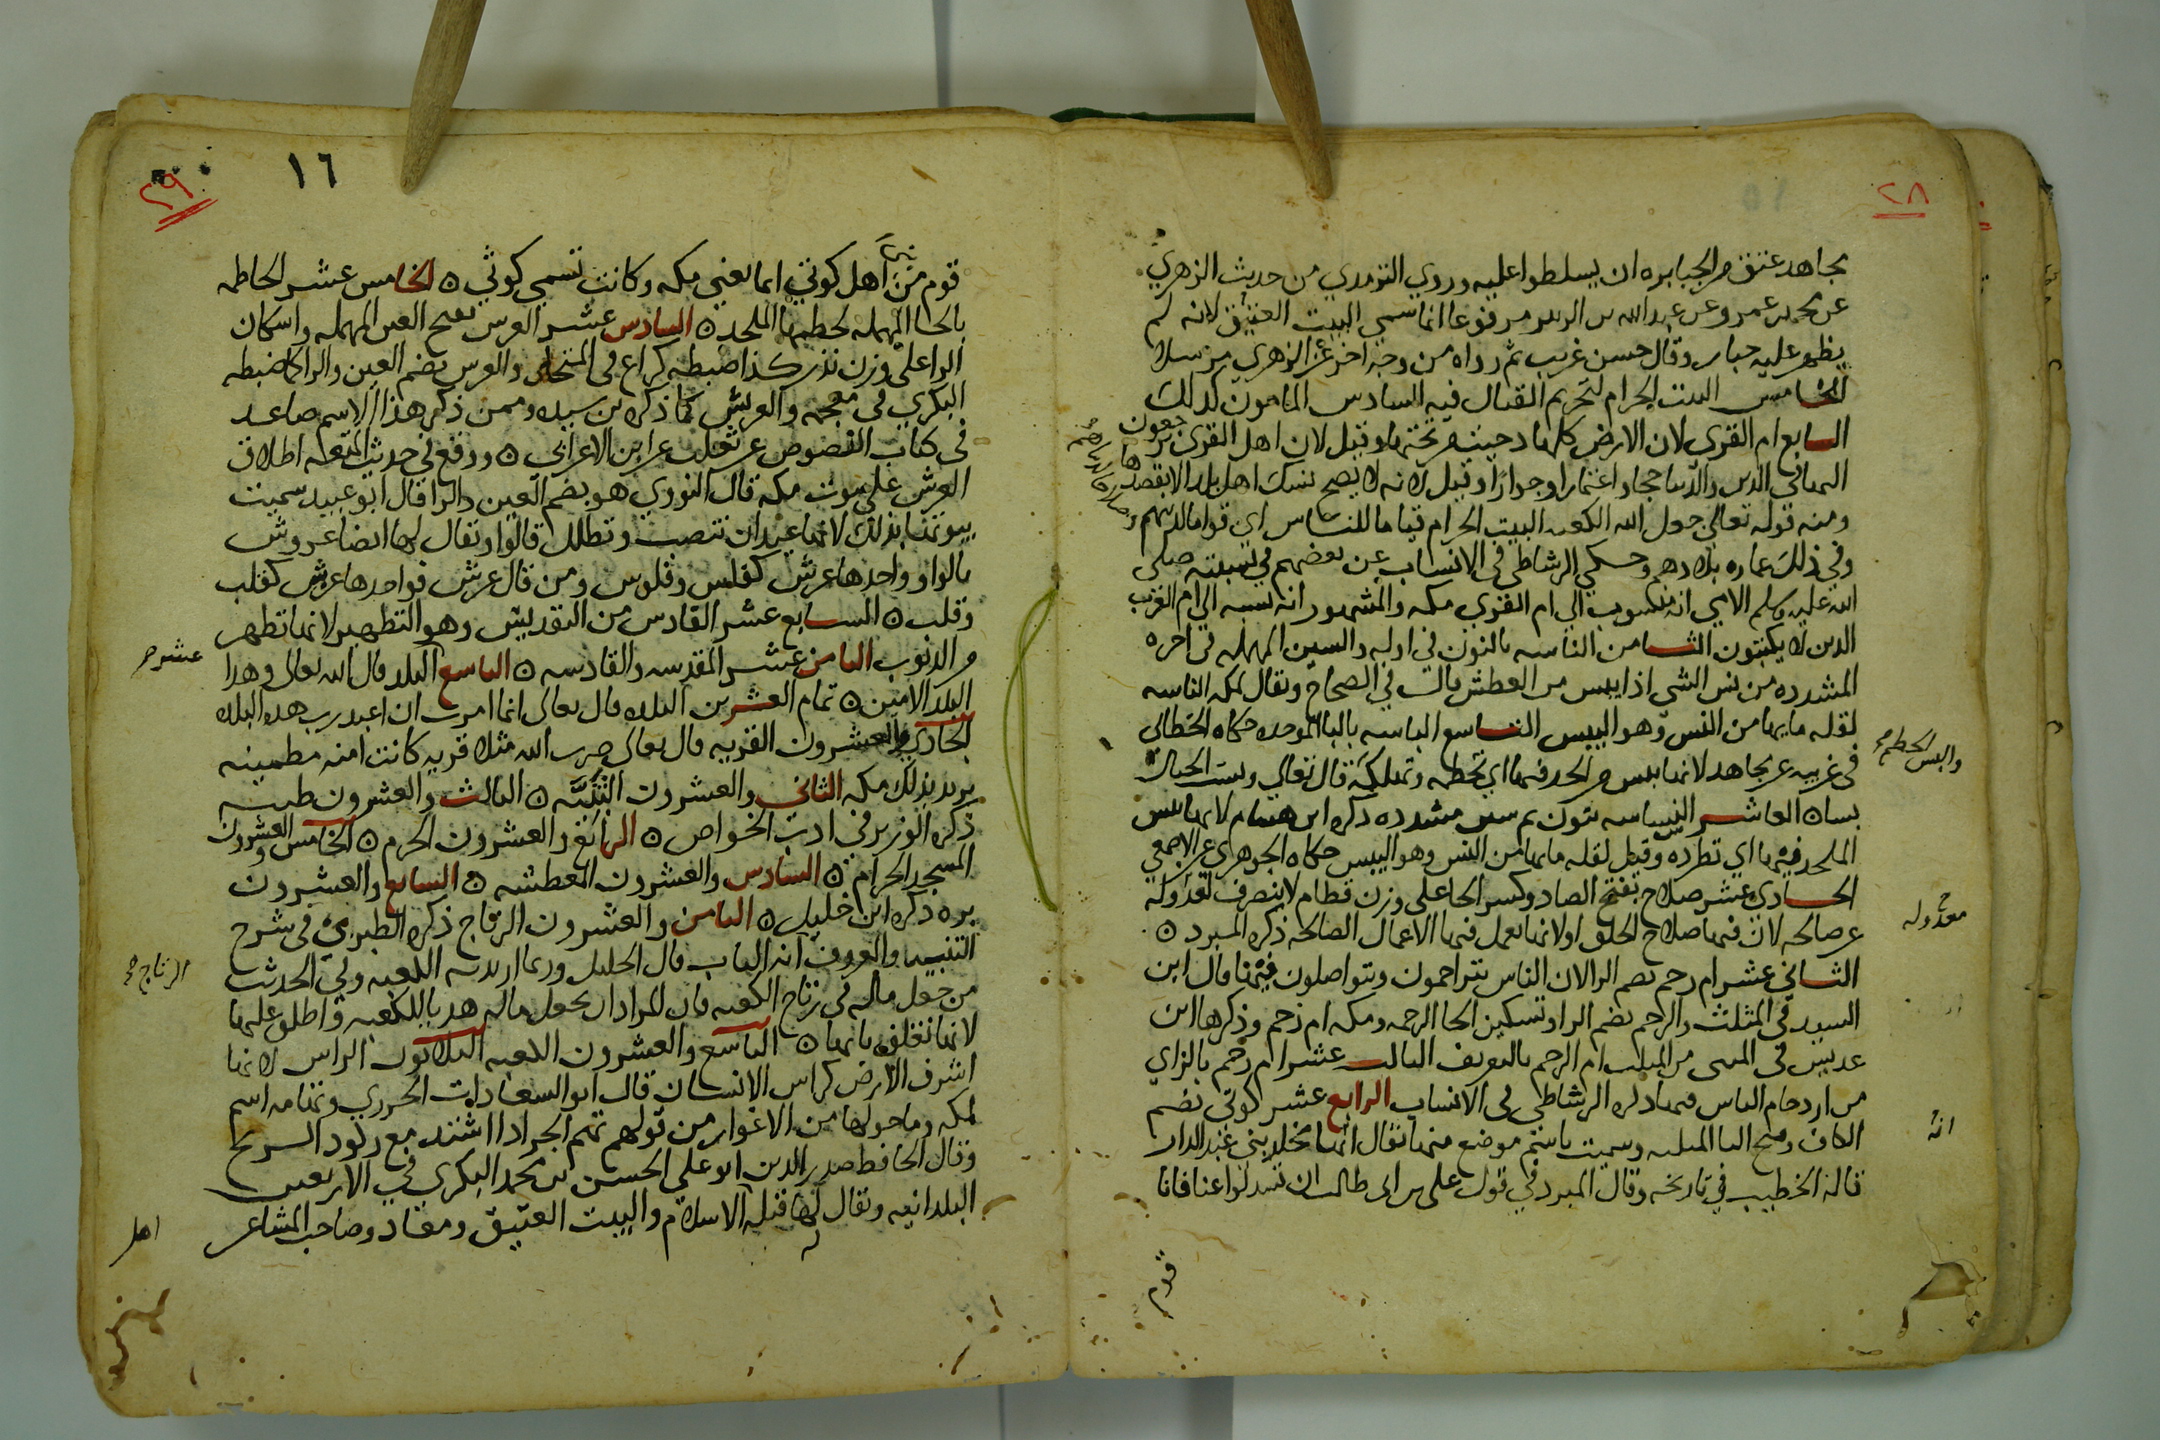 ٢٨
مجاهد عتق من الجبابره ان يسلطوا عليه وروي الترمدي من حديث الزهري
عن محمد بن عمرو عن عبد الله بن الزبير مرفوعا انما سمي البيت العتيق لانه لم
يظهر عليه جبار وقال حسن غريب ثم رواه من وجه اخر عن الزهري مرسلا
الخامس البيت الحرام لتحريم القتال فيه السادس المامون كذلك
السابع ام القرى لان الارض كلها دحيت من تحتها وقيل لان اهل القرى يرجعون
اليها في الدين والدنيا حجا واعتمارا وجوارا وقيل لانه لا يصح نسك اهل بلد الا بقصدها
ومنه قوله تعالى جعل الله الكعبه البيت الحرام قياما للناس اي قواما لدينهم
وفي ذلك عماره بلادهم وحكي الرشاطي في الانساب عن بعضهم في نسبته صلى
الله عليه وسلم الامي انه منسوب الي ام القرى مكه والمشهور انه نسبه الي ام العرب
الدين لا يكتبون الثامن الناسه بالنون في اوله والسين المهمله في اخره
المشدده من نس الشي اذا يبس من العطش قال في الصحاح ويقال لمكه الناسه
لقله مايها من النس وهو اليبس التاسع الباسه بالبا الموحده حكاه الخطابي
والبس الحطم صح
في غريبه عن مجاهد لانها تبس من الحد فيها اي تحطمه وتهلكه قال تعالي وبست الجبال
بسا ه العاشر النساسه بنون ثم سين مشدده ذكره ابن هشام لانها تنس
الملحد فيها اي تطرده وقيل لقله مايها من النس وهو اليبس حكاه الجوهري عن الاصمعي
الحادي عشر صلاح بفتح الصاد وكسر الحا على وزن قطام لا ينصرف لعدوله
معدوله
عن صالحه لان فيها صلاح الخلق او لانها يعمل فيها الاعمال الصالحه ذكره المبرد ه
الثاني عشر ام رحم بضم الرا لان الناس يتراحمون ويتواصلون فيها قال ابن
السيد في المثلث والرحم بضم الرا وتسكين الحا الرحمه ومكه ام رحم وذكرها ابن
عديس في المثنى من المثلث ام الرحم بالتعريف الثالث عشر ام زحم بالزاي
من ازدحام الناس فيها ذكره الرشاطي في الانساب الرابع عشر كوثى بضم
الكاف وفتح الثا المثلثه وسميت باسم موضع منها يقال انها محله بني عبد الدار
انه
قاله الخطيب في تاريخه وقال المبرد في قول علي بن ابي طالب ان تسالوا عنا فانا
قوم
٢٩
١٦
قوم من اهل كوثى انما يعني مكه وكانت تسمى كوثى ه الخامس عشر الحاطمه
بالحا المهمله لحطمها الملحد ه السادس عشر العرش بفتح العين المهمله واسكان
الرا على وزن نذر كذا ضبطه كراع في المنتخل والعرش بضم العين والرا كما ضبطه
البكري في معجمه والعريش كما ذكره بن سيده وممن ذكر هذا الاسم صاعد
في كتاب الفصوص عن ثعلب عن ابن الاعرابي ه ووقع في حديث المتعه اطلاق
العرش على بيوت مكه قال النووي هو بضم العين والرا قال ابو عبيد سميت
بيوتها بذلك لانها عيدان تنصب وتظلل قالوا ويقال لها ايضا عروش
بالواو واحدها عرش كفلس وفلوس ومن قال عرش فواحدها عرش كقلب
وقلب ه السابع عشر القادس من التقديس وهو التطهير لانها تطهر
من الذنوب الثامن عشر المقدسه والقادسه ه التاسع البلد قال الله تعالى وهذا
عشر صح
البلد الامين ه تمام العشرين البلده قال تعالى انما امرت ان اعبد رب هده البلده
الحادي والعشرون القريه قال تعالى ضرب الله مثلا قريه كانت امنه مطمينه
يريد بذلك مكه الثاني والعشرون الثنيه ه الثالث والعشرون طيبه
ذكره الوزير في ادب الخواص ه الرابع والعشرون الحرم ه الخامس والعشرون
المسجد الحرام ه السادس والعشرون المعطشه ه السابع والعشرون
بره ذكره ابن خليل ه الثامن والعشرون الرتاج ذكره الطبري في شرح
التنبيه والمعروف انه الباب قال الخليل وربما اريد به الكعبه وفي الحديث
الرتاج صح
من جعل ماله في رتاج الكعبه قال المراد ان يجعل ماله هديا للكعبه واطلق عليها
لانها تغلق بابها ه التاسع والعشرون الكعبه الثلاثون الراس لانها
اشرف الارض كراس الانسان قال ابو السعادات الجزري وتهامه اسم
لمكه وما حولها من الاغوار من قولهم تهم الحر اذا اشتد مع ركود الريح
وقال الحافظ صدر الدين ابو علي الحسن بن محمد البكري في الاربعين
البلدانيه ويقال لها قبله الاسلام والبيت العتيق ومعاد وصاحب المشاعر
اهل